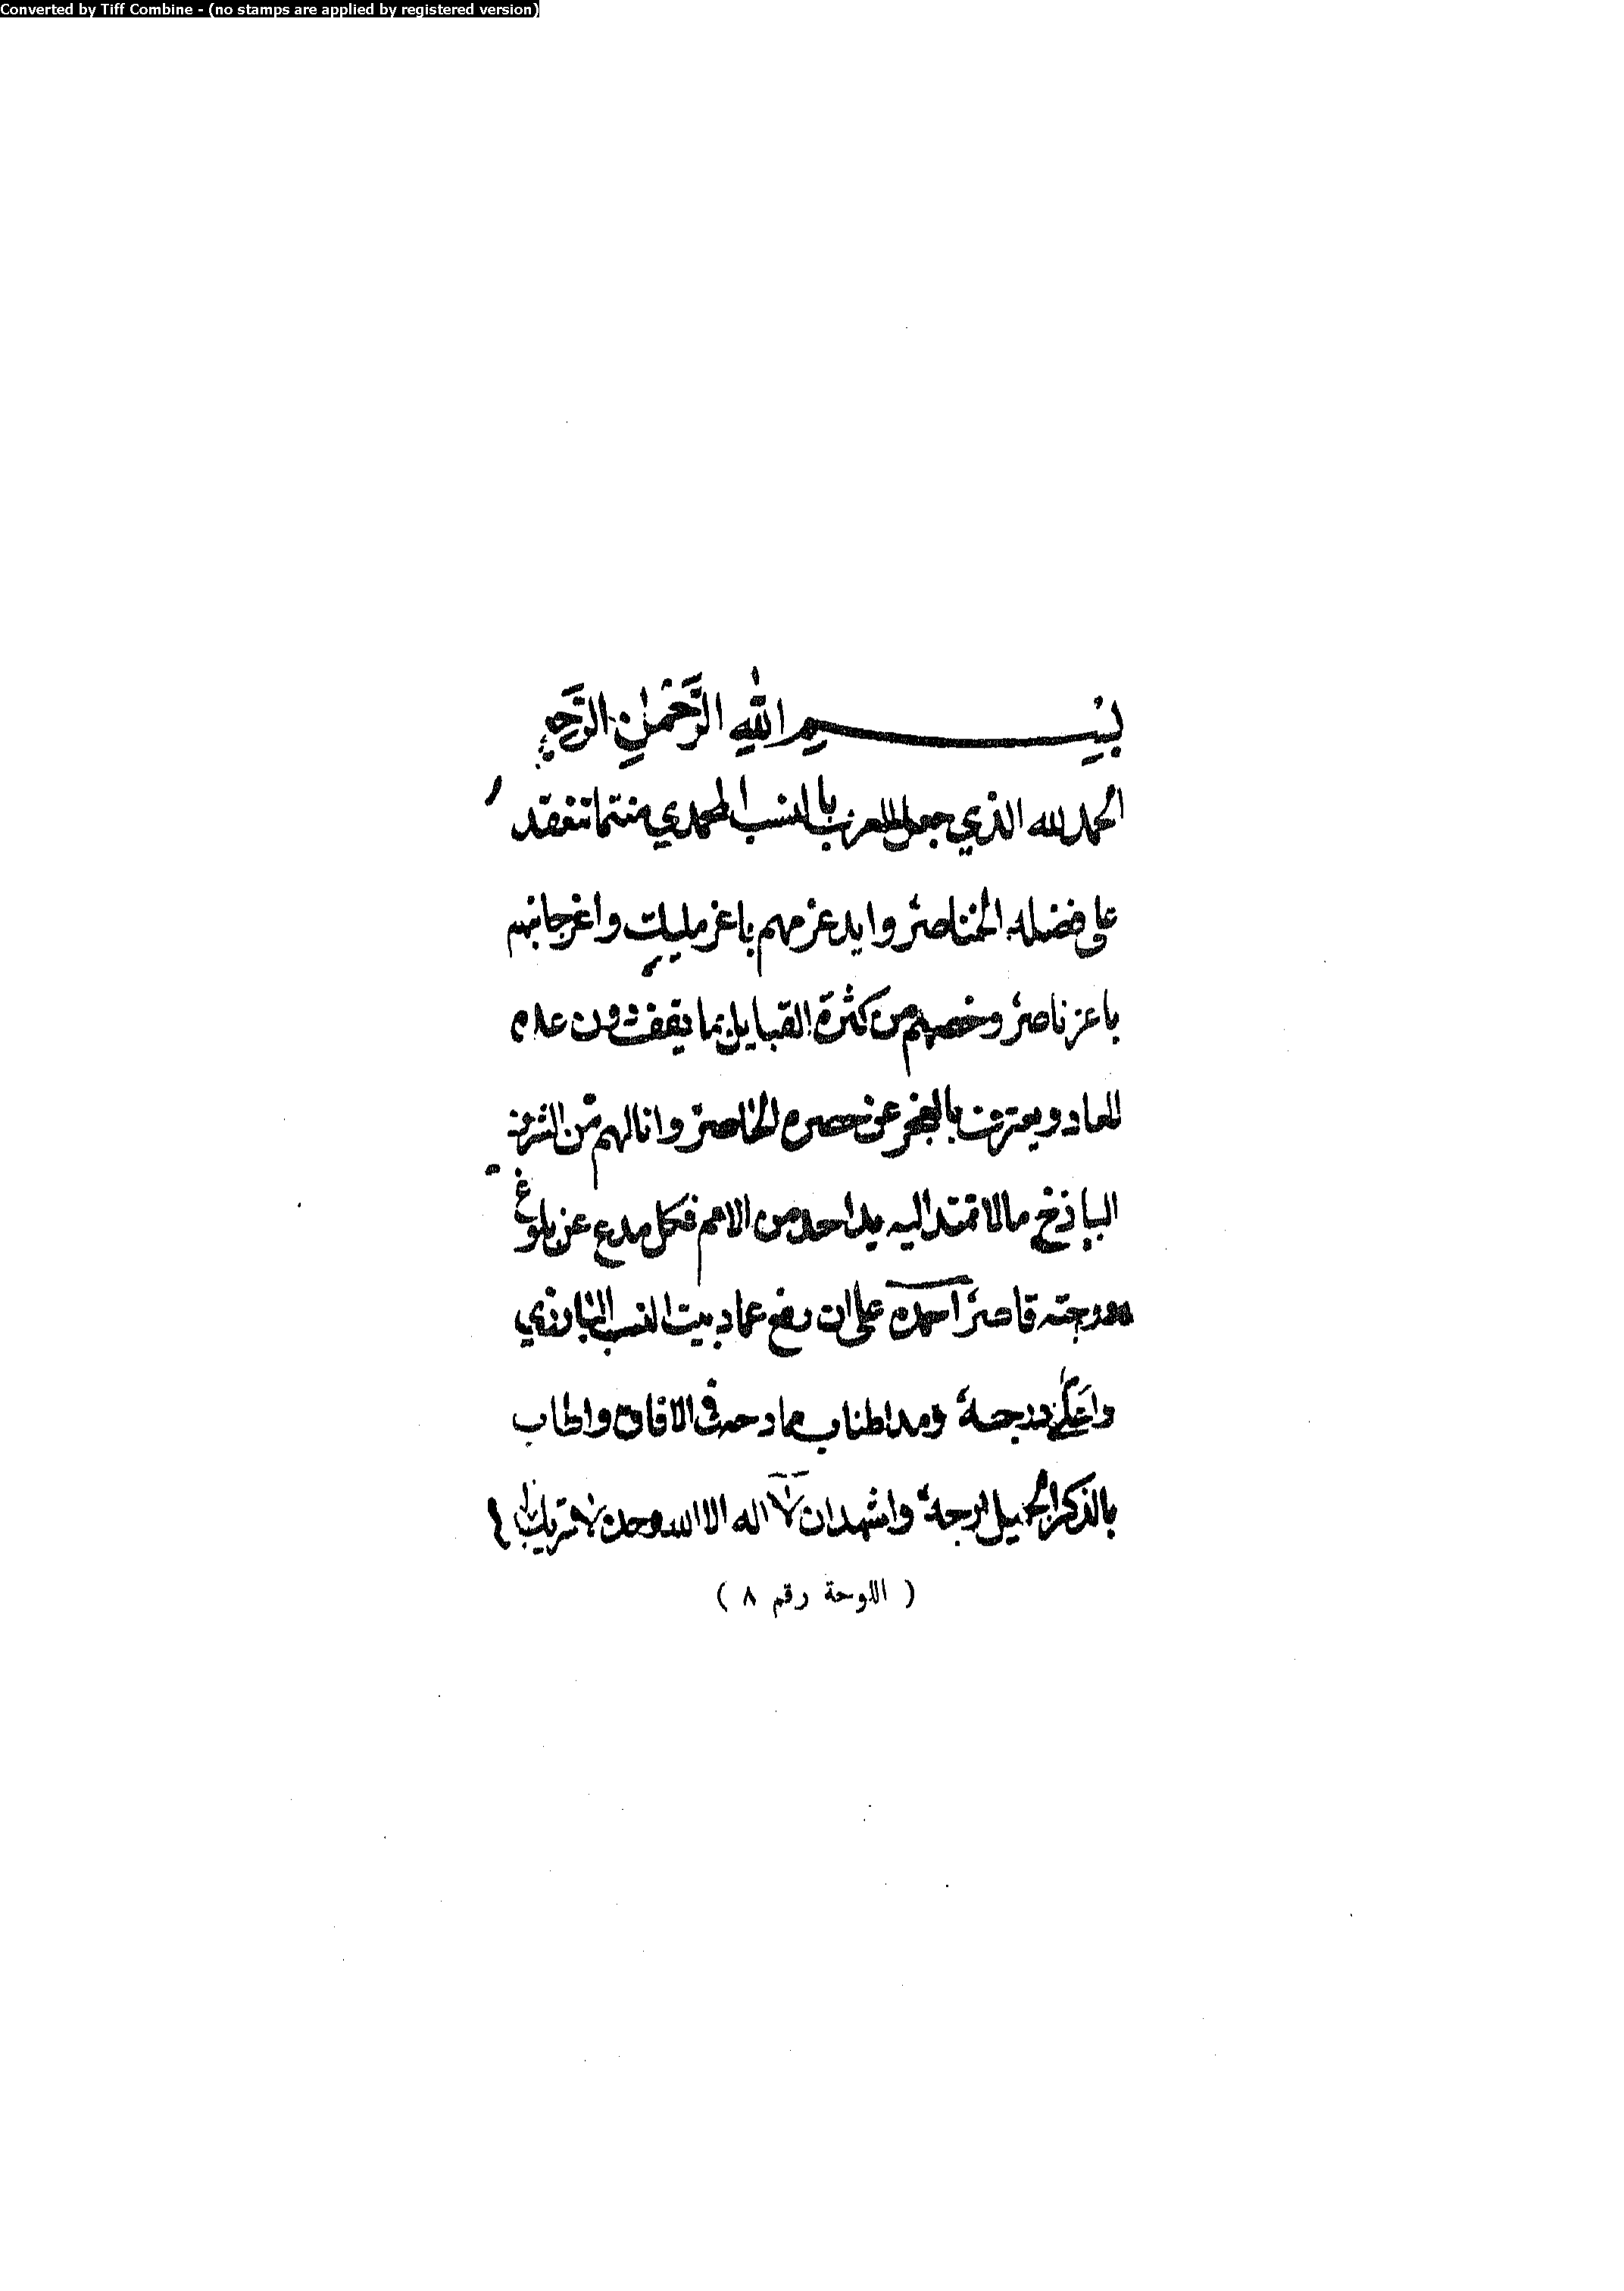 Converted by Tiff Combine - (no stamps are applied by registered version)
بسم الله الرحمن الرحيم
الحمد لله الذي جعل للعرب بالنسب المحمدي منتما تنعقد
على فضله الخناصر وايد عزمهم باعز مليك واعز جانبهم
باعز ناصر وخصهم من كثرة القبايل بما يقف دون علام
العاد ويعترف بالعجز عن حصره الحاصر وانالهم من الشرف
الباذخ مالا تمتد اليه يد احد من الامم فكل مدع عن بلوغ
درجته قاصر احمده على ان رفع عماد بيت النسب البارزي
واعلى درجه ومد اطناب مادحه في الافاق واطاب
بالذكر الجميل ارجه واشهد ان لا اله الا الله وحده لا شريك له
( اللوحة رقم ٨ )